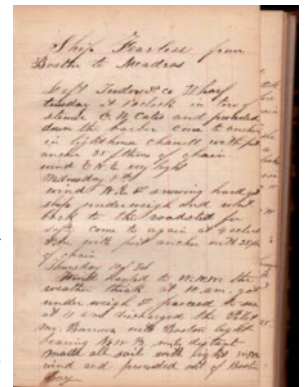 Ship Fearless from
Boston to Madras
Left Tudor & co Wharf
tuesday at 1 oclock in tow of
steamer C. W. Cates and proceeded
down the harbor come to anchor
in lighthouse channell with port
anchor 35 fthms of chain
wind E.N.E. very light
Wednesday
wind N.E. & snowing hard got
ship underweigh and went
back to the roadsted for
safety come to again at 4 oclock
P.M. with port anchor with 35 fm
of chain
Thursday
Wind hauled to W.N.W. the
weather thick at 10 a.m. got
under weigh & proceed to sea
at 11 a.m. discharged the Pilot
Mr. Burrows with Boston light
bearing miles distant
made all sail with light
wind and proceeded out of Boston
bay